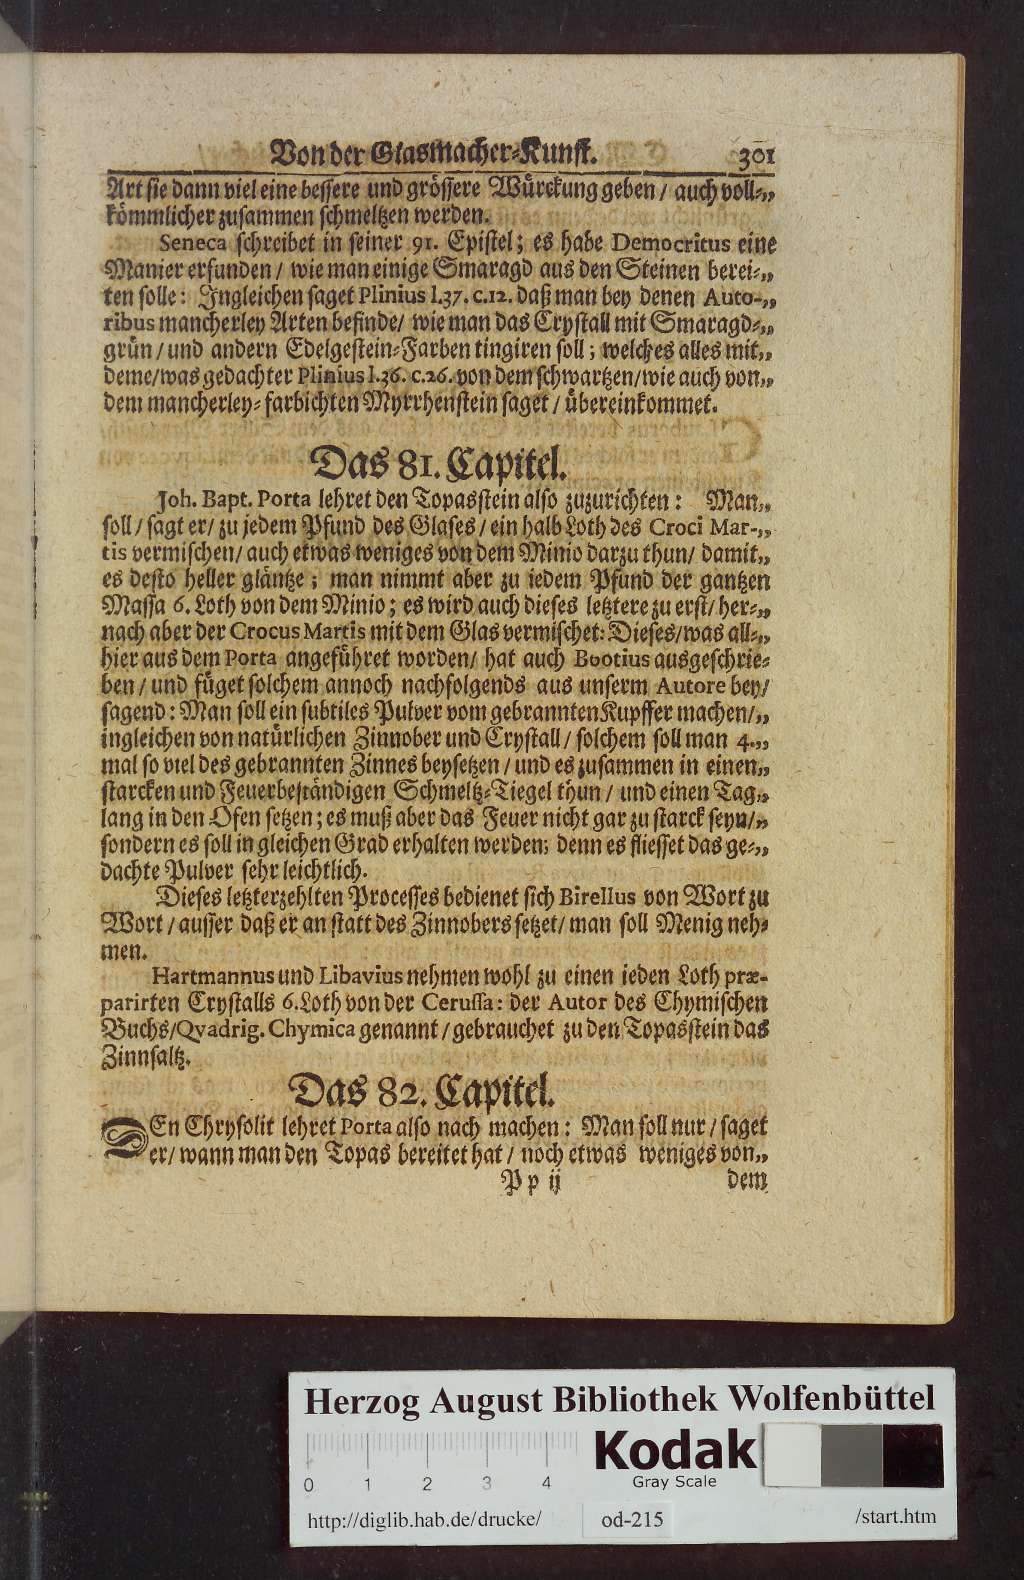 Von der Glasmacher-Kunst. 301
Art sie dann viel eine bessere und grössere Würckung geben / auch voll-„
kömmlicher zusammen schmeltzen werden.
Seneca schreibet in seiner 91. Epistel; es habe Democritus eine
Manier erfunden / wie man einige Smaragd aus den Steinen berei-„
ten solle: Ingleichen saget Plinius l.37. c.12. daß man bey denen Auto-„
ribus mancherley Arten befinde/ wie man das Crystall mit Smaragd-„
grün / und andern Edelgestein-Farben tingiren soll; welches alles mit„
deme/was gedachter Plinius l.36. c.26. von dem schwartzen/wie auch von„
dem mancherley-farbichten Myrrhenstein saget / übereinkommet.
Das 81. Capitel.
Joh. Bapt. Porta lehret den Topasstein also zuzurichten: Man„
soll / sagt er / zu jedem Pfund des Glases / ein halb Loth des Croci Mar-„
tis vermischen/ auch etwas weniges von dem Minio darzu thun/ damit„
es desto heller gläntze; man nimmt aber zu jedem Pfund der gantzen
Massa 6. Loth von dem Minio; es wird auch dieses letztere zu erst/ her-„
nach aber der Crocus Martis mit dem Glas vermischet: Dieses/was all-„
hier aus dem Porta angeführet worden/ hat auch Bootius ausgeschrie-
ben / und füget solchem annoch nachfolgends aus unserm Autore bey/
sagend: Man soll ein subtiles Pulver vom gebrannten Kupffer machen/„
ingleichen von natürlichen Zinnober und Crystall / solchem soll man 4.„
mal so viel des gebrannten Zinnes beysetzen / und es zusammen in einen„
starcken und Feuerbeständigen Schmeltz-Tiegel thun / und einen Tag„
lang in den Ofen setzen; es muß aber das Feuer nicht gar zu starck seyn/„
sondern es soll in gleichen Grad erhalten werden; denn es fliesset das ge-„
dachte Pulver sehr leichtlich.
Dieses letzterzehlten Processes bedienet sich Birellus von Wort zu
Wort / ausser daß er an statt des Zinnobers setzet/ man soll Menig neh-
men.
Hartmannus und Libavius nehmen wohl zu einen jeden Loth præ-
parirten Crystalls 6. Loth von der Cerussa: der Autor des Chymischen
Buchs/Qvadrig. Chymica genannt / gebrauchet zu den Topasstein das
Zinnsaltz.
Das 82. Capitel.
DEn Chrysolit lehret Porta also nach machen: Man soll nur / saget
er/ wann man den Topas bereitet hat / noch etwas weniges von„
Pp ij dem
Herzog August Bibliothek Wolfenbüttel
0 1 2 3 4
Kodak
Gray Scale
http://diglib.hab.de/drucke/ od-215 /start.htm